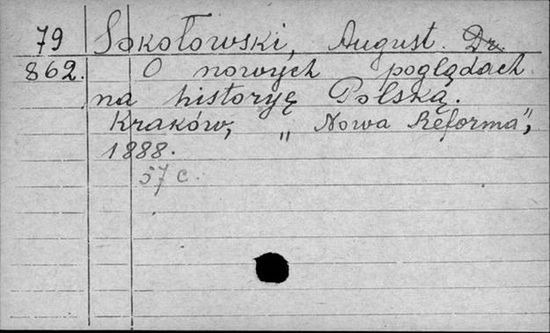 79 Sokołowski, August. Dr.
862. O nowych poglądach
na historyę Polską.
Kraków, „Nowa Reforma",
1888.
57 c.